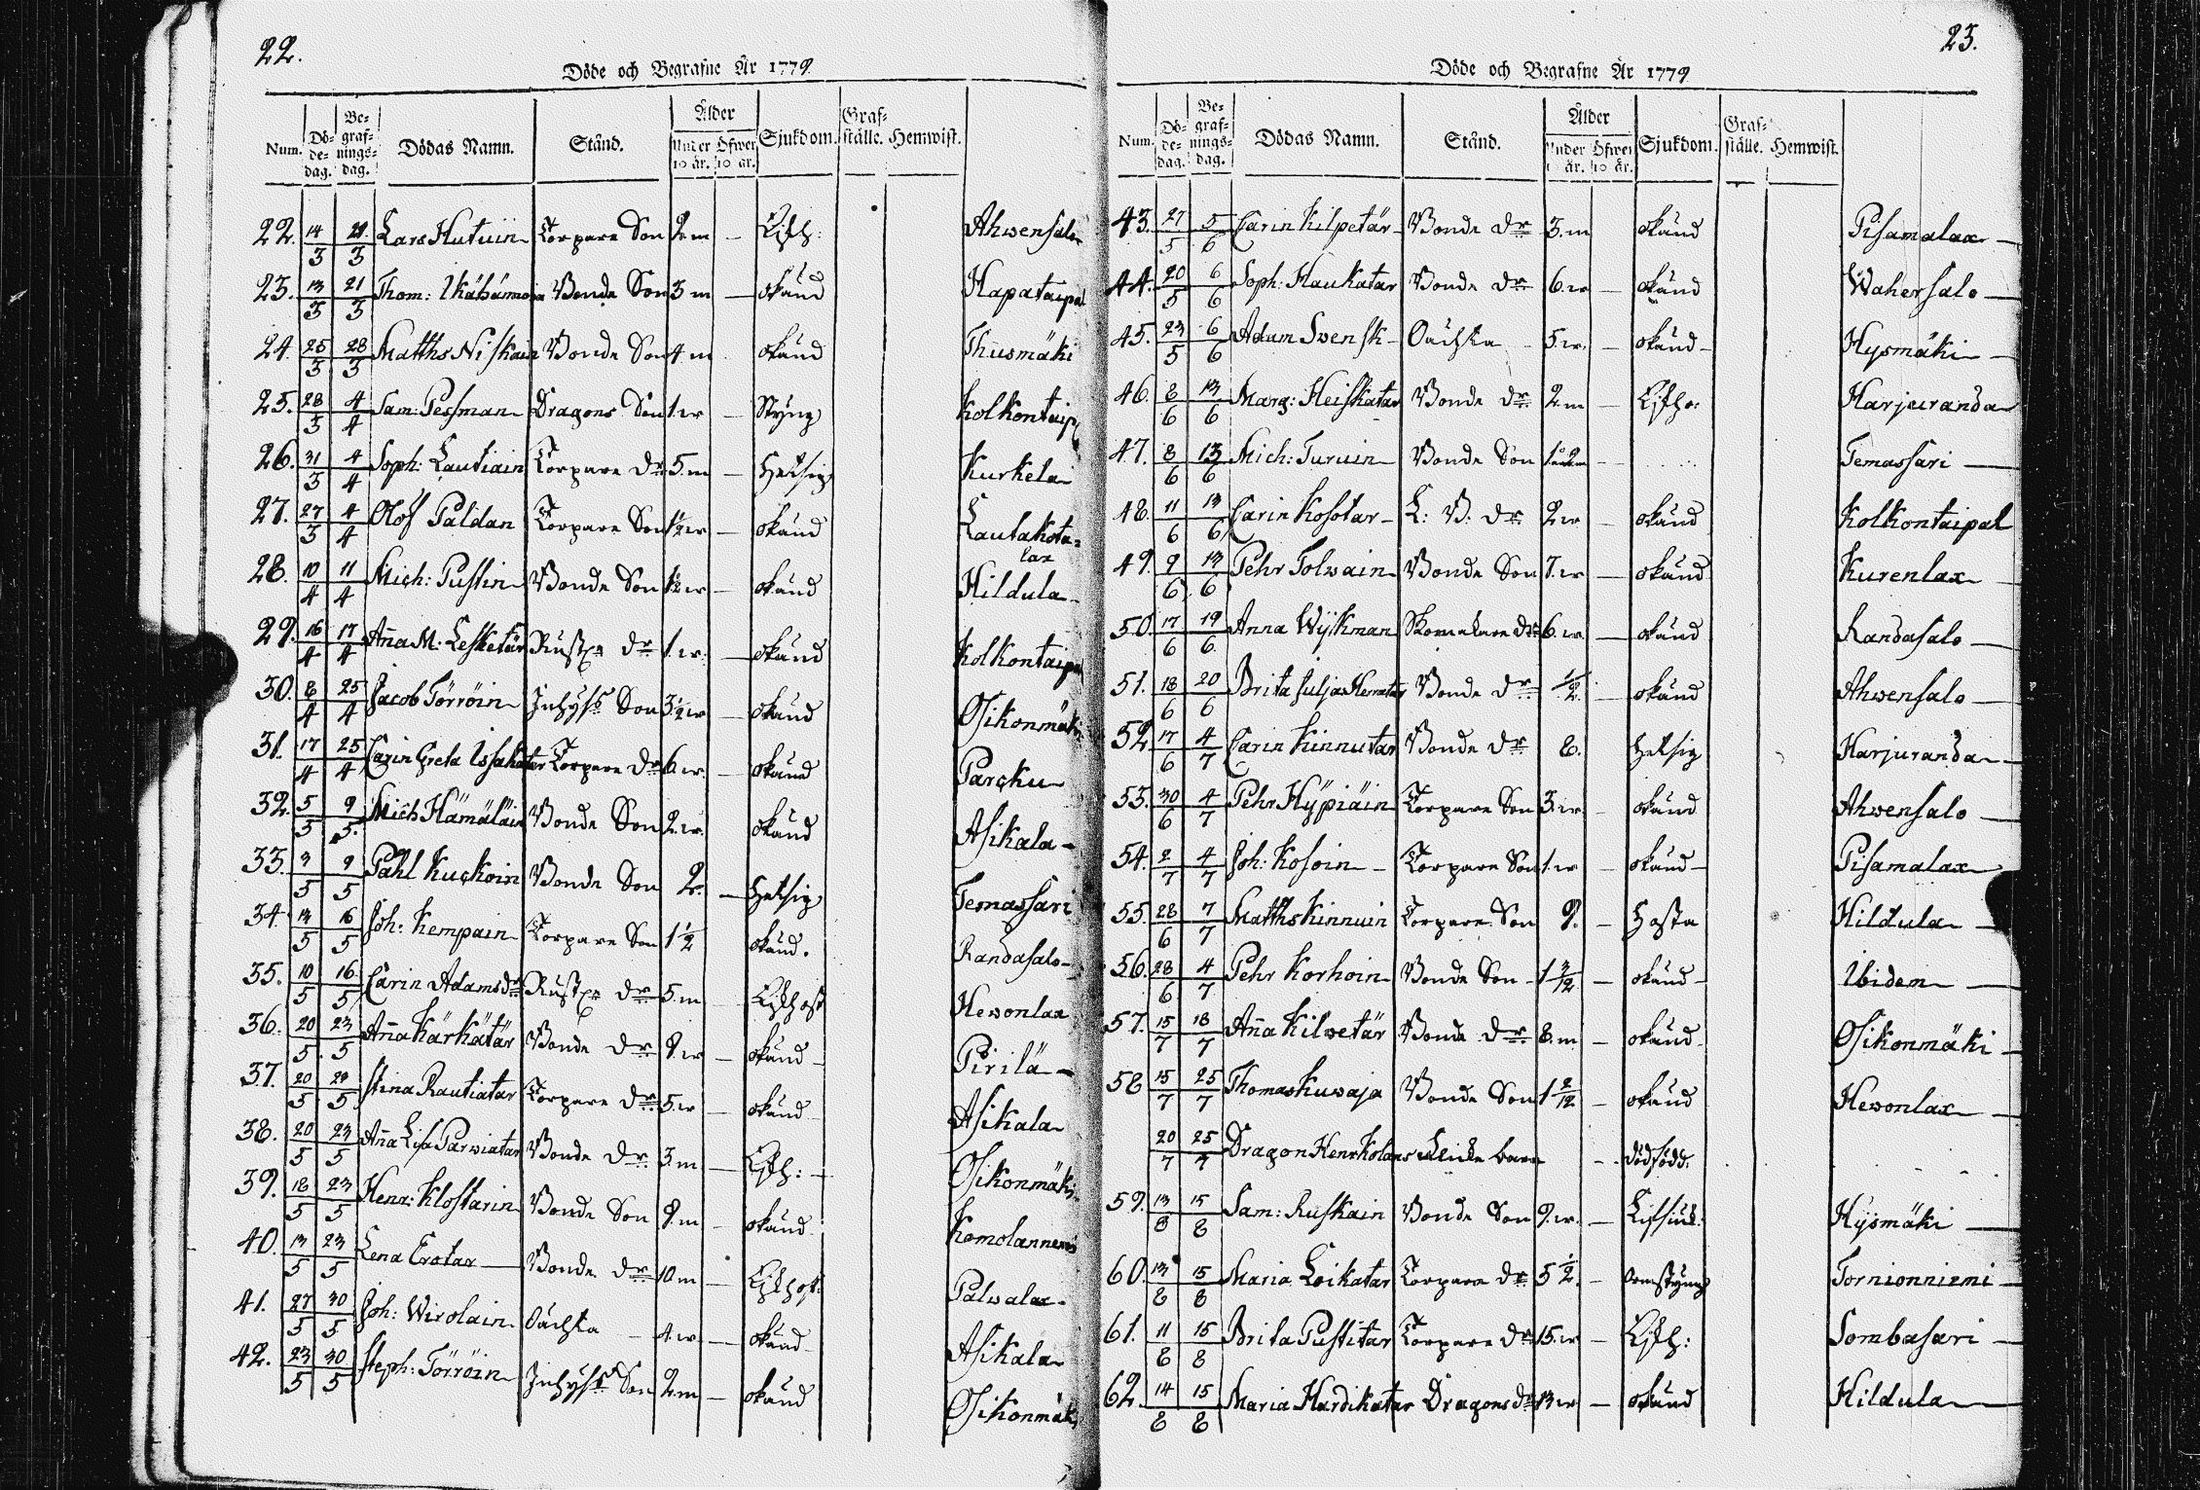 22.
Döde och Begrafne År 1779.
Num. Dö-de-dag. Be-graf-nings-dag. Dödas Namn. Stånd. Ålder Under 10 år. Öfwer 10 år. Sjukdom. Graf-ställe. Hemwist.
22. 14/3 21/3 Lars Hutuin Torpare Son 2.m — Ahwensalo
23. 13/3 21/3 Thom: Bonde Son 3 m — okänd Hapataipal
24. 25/3 28/3 Matths Niskain Bonde Son 4 m okänd Thusmäki
25. 28/3 4/4 Sam: Pessman Dragons Son 1.er — Styng Kolkontaip
26. 31/3 4/4 Soph: Lautiain Torpare Dr 5.m — Hetsig Kurkela
27. 27/3 4/4 Olof Paldan Torpare Son 1½ er — okänd Lautakota=lax
28. 10/4 11/4 Mich: Pustin Bonde Son 1½ er — okänd Hildula
29. 16/4 17/4 Aña M. Lesketär Dr 1.er. — okänd Kolkontaipa
30. 8/4 25/4 Jacob Törröin Inhys Son 3½ er — okänd Osikonmäki
31. 17/4 25/4 Carin Greta Issakatar Torpare Dr 6.er. — okänd Parcku
32. 5/5 9/5 Mich Hämäläin Bonde Son 2.er. okänd Asikala
33. 3/5 9/5 Påhl Kuckoin Bonde Son 2. — Hetsig Temassari
34. 13/5 16/5 Joh: Kempain Torpare Son 1½ okänd. Randasalo
35. 10/5 16/5 Carin Adamsdr Dr 5.m — Hewonlax
36. 20/5 23/5 Aña Kärkätär Bonde Dr 9.er — okänd Pirilä
37. 20/5 Stina Rautiatar Torpare Dr 5.er — okänd Asikala
38. 20/5 23/5 Aña Lisa Parwiatar Bonde Dr 3.m — Osikonmäki
39. 18/5 23/5 Henr: Klostarin Bonde Son 9.m — okänd Komolannemi
40. 13/5 23/5 Lena Erotar Bonde Dr 10 m — Palwalax
41. 27/5 30/5 Joh: Wirolain Oächta 4.er — okänd Asikala
42. 23/5 30/5 Steph: Törröin Inhys Son 2.m — okänd Osikonmäki
23.
Döde och Begrafne År 1779
Num. Dö-de-dag. Be-graf-nings-dag. Dödas Namn. Stånd. Ålder Under 10 år. Öfwer 10 år. Sjukdom. Graf-ställe. Hemwist.
43. 27/5 5/6 Carin Kilpetär Bonde Dr 3.m okänd Pisamalax
44. 20/5 6/6 Soph: Haukatar Bonde Dr 6.er — okänd Wahersalo
45. 23/5 6/6 Adam Svensk Oächta 5.er. — okänd Hysmäki
46. 8/6 13/6 Marg: Heiskatar Bonde Dr 2.m — Harjuranda
47. 8/6 13/6 Mich: Turuin Bonde Son Temassari
48. 11/6 13/6 Carin Kosotar L: B: Dr 2.er — okänd Kolkontaipal
49. 9/6 13/6 Pehr Tolwain Bonde Son 7.er — okänd Kurenlax
50. 17/6 19/6 Anna Wijkman Skomakare Dr 6.er. — okänd Randasalo
51. 18/6 20/6 Brita Bonde Dr ½ — okänd Ahwensalo
52. 17/6 4/7 Carin Kinnutar Bonde Dr 8. Hetsig Harjuranda
53. 30/6 4/7 Pehr Hÿpiäin Torpare Son 3.er — okänd Ahwensalo
54. 2/7 4/7 Joh: Kosoin Torpare Son 1.er — okänd Pisamalax
55. 28/6 7/7 Matths Kinnuin Torpare Son 9. — Hosta Hildula
56. 28/6 4/7 Pehr Korhoin Bonde Son 1 3/12 — okänd Ibidem
57. 15/7 18/7 Aña Kilwetär Bonde Dr 8.m — okänd Osikonmäki
58 15/7 25/7 Thomas Kuwaja Bonde Son 1 2/12 — okänd Hewonlax
20/7 25/7 Dragon Henr Kolans barn — dödfödd.
59. 13/8 15/8 Sam: Ruskain Bonde Son 9.er. — Hysmäki
60. 13/8 15/8 Maria Loikatar Torpare Dr 5½. — Tornionniemi
61. 11/8 15/8 Brita Pustitar Torpare Dr 15.er — Sombasari
62. 14/8 15/8 Maria Hardikatar Dragons dr 13 er — okänd Hildula